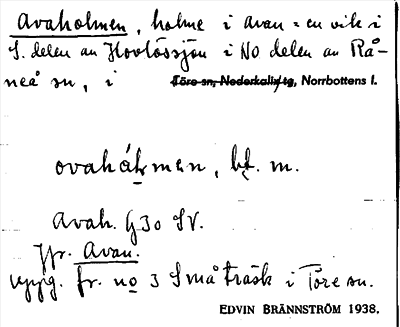 Avaholmen, holme i Avan = en vik i
S. delen av Hovlössjön i NO delen av Rå-
neå sn, i Töre sn, Nederkalix tg, Norrbottens l.
ovahåḷmen, bf. m.
Avah. G 30 SV.
Jfr. Avan.
uppg. fr. no 3 Småträsk i Töre sn.
EDVIN BRÄNNSTRÖM 1938.